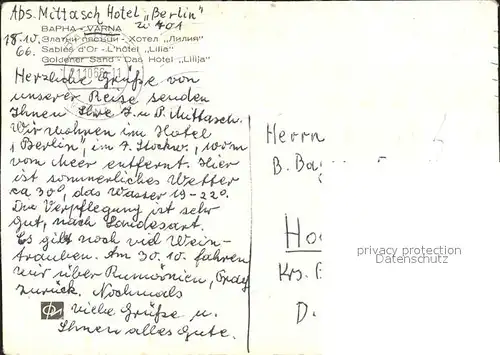 Abs. Mittasch Hotel „Berlin"
Z 401
ВАРНА - VARNA
18.10.
66.
Златни пясъци - Хотел „Лилия"
Sables d'Or - L'hôtel „Lilia"
Goldener Sand - Das Hotel „Lilija"
Herzliche Grüße von
unserer Reise senden
Ihnen Ihre J. u. P. Mittasch.
Wir wohnen im Hotel
„Berlin", im 4. Stockw., 100 m
vom Meer entfernt. Hier
ist sommerliches Wetter
ca 30°, das Wasser 19-22°.
Die Verpflegung ist sehr
gut, nach Landesart.
Es gibt noch viel Wein-
trauben. Am 30.10. fahren
wir über Rumänien, Prag
zurück. Nochmals
viele Grüße u.
Ihnen alles Gute.
Herrn
B. Ba
Ho
Krs. B
D.
privacy protection
Datenschutz